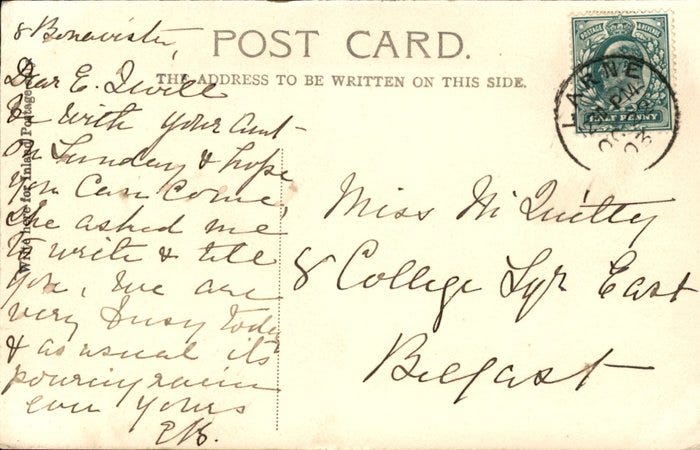 8 Bonavista,
POST CARD.
THE ADDRESS TO BE WRITTEN ON THIS SIDE.
Write here for Inland Postage
Dear E. I will
be with your aunt
on Sunday & hope
you can come,
she asked me
to write & tell
you, we are
very busy today
& as usual its
pouring rain
ever yours
POSTAGE REVENUE
HALF PENNY
LARNE
PM
OC
03
Miss McQuitty
8 College Sqr East
Belfast